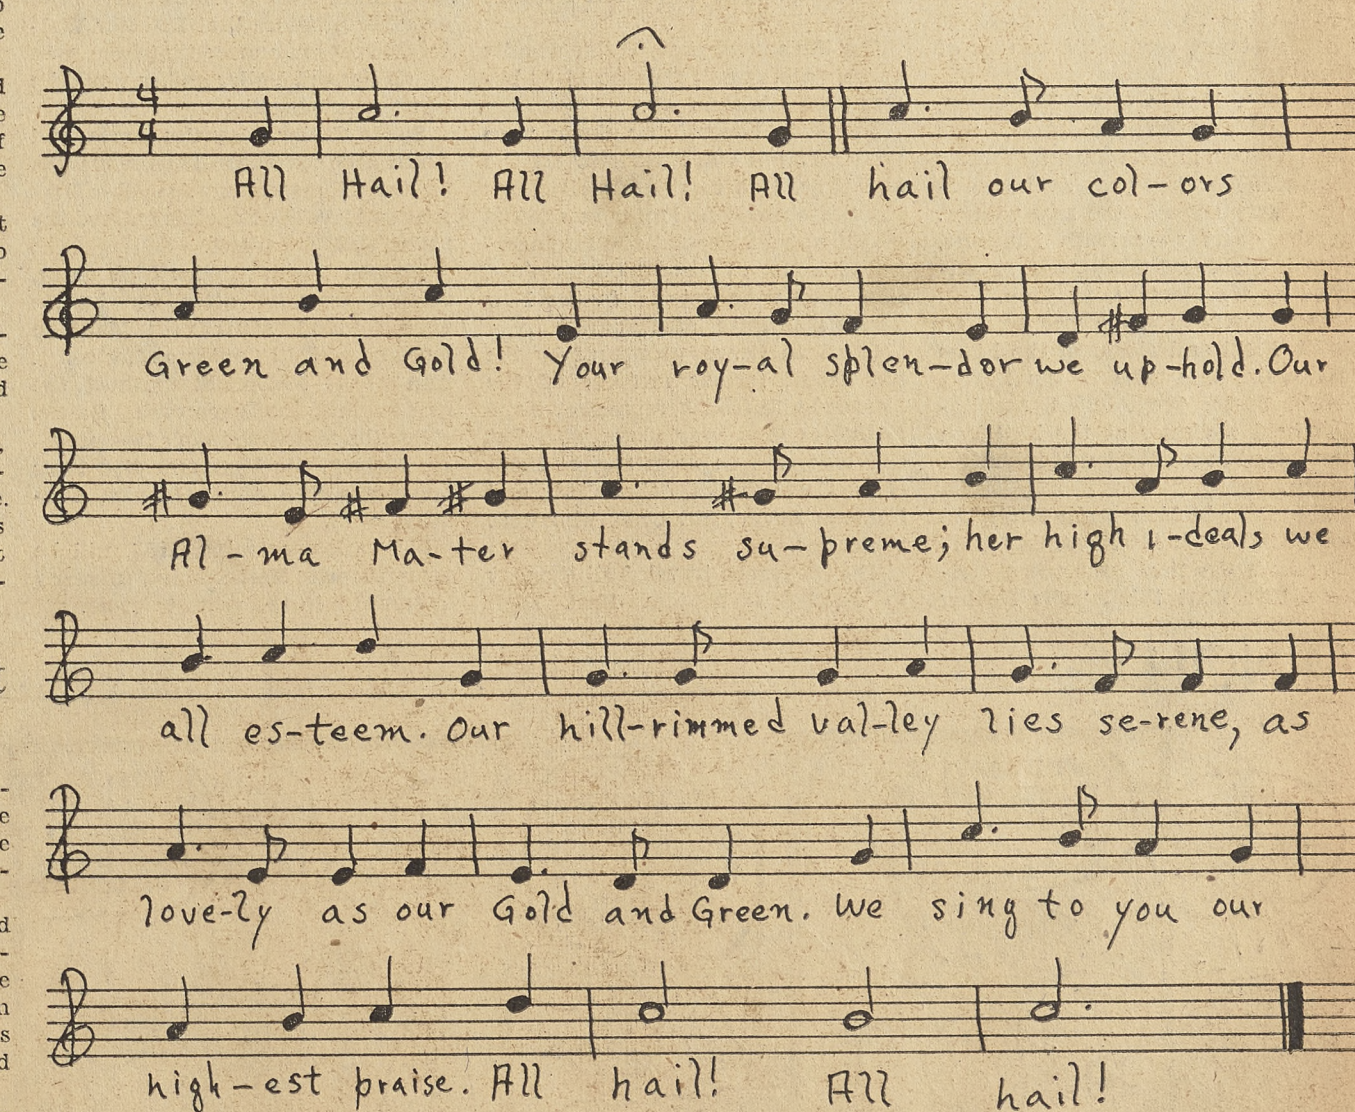 4
4
All Hail! All Hail! All hail our col-ors
Green and Gold! Your roy-al splen-dor we up-hold. Our
Al-ma Ma-ter stands su-preme; her high i-deals we
all es-teem. Our hill-rimmed val-ley lies se-rene, as
love-ly as our Gold and Green. We sing to you our
high-est praise. All hail! All hail!